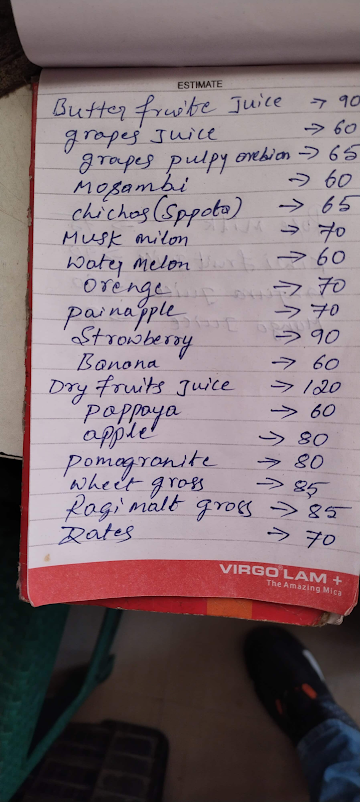 ESTIMATE
Butter fruite Juice → 90
grapes Juice → 60
grapes pulpy orebian → 65
Mosambi → 60
chichos (Sppota) → 65
Musk milon → 70
Water melon → 60
Orenge → 70
painapple → 70
Strowberry → 90
Banana → 60
Dry fruits Juice → 120
pappaya → 60
apple → 80
pomogranite → 80
wheet gross → 85
Ragi malt gross → 85
Dates → 70
VIRGO LAM +
The Amazing Mica